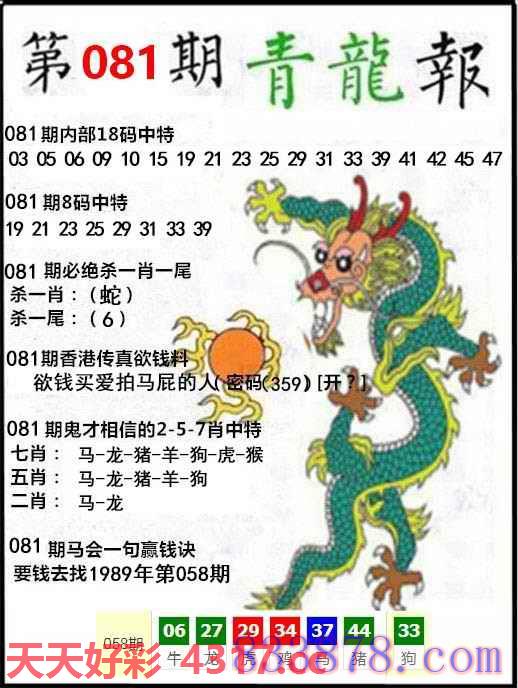 第081期青龍報
081期内部18码中特
03 05 06 09 10 15 19 21 23 25 29 31 33 39 41 42 45 47
081期8码中特
19 21 23 25 29 31 33 39
081期必绝杀一肖一尾
杀一肖：（蛇）
杀一尾：（6）
081期香港传真欲钱料
欲钱买爱拍马屁的人(密码(359)[开？]
081期鬼才相信的2-5-7肖中特
七肖： 马-龙-猪-羊-狗-虎-猴
五肖： 马-龙-猪-羊-狗
二肖： 马-龙
081期马会一句赢钱诀
要钱去找1989年第058期
058期 06 27 29 34 37 44 33
牛 龙 虎 鸡 马 猪 狗
天天好彩 4317.cc
838878.com